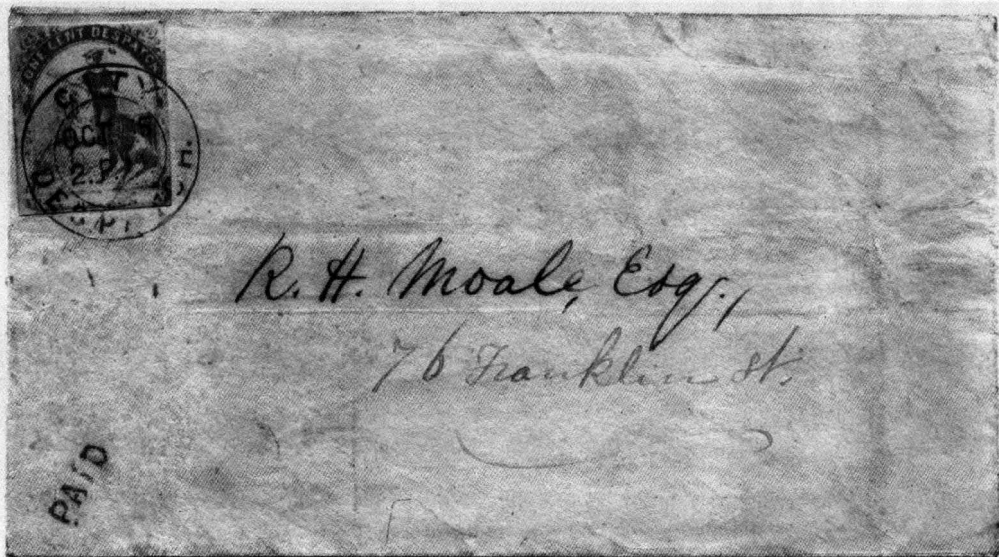 ONE CENT DESPATCH
CITY
OCT
2.P.
DESPATCH
R. H. Moale, Esq.,
76 Franklin St.
PAID